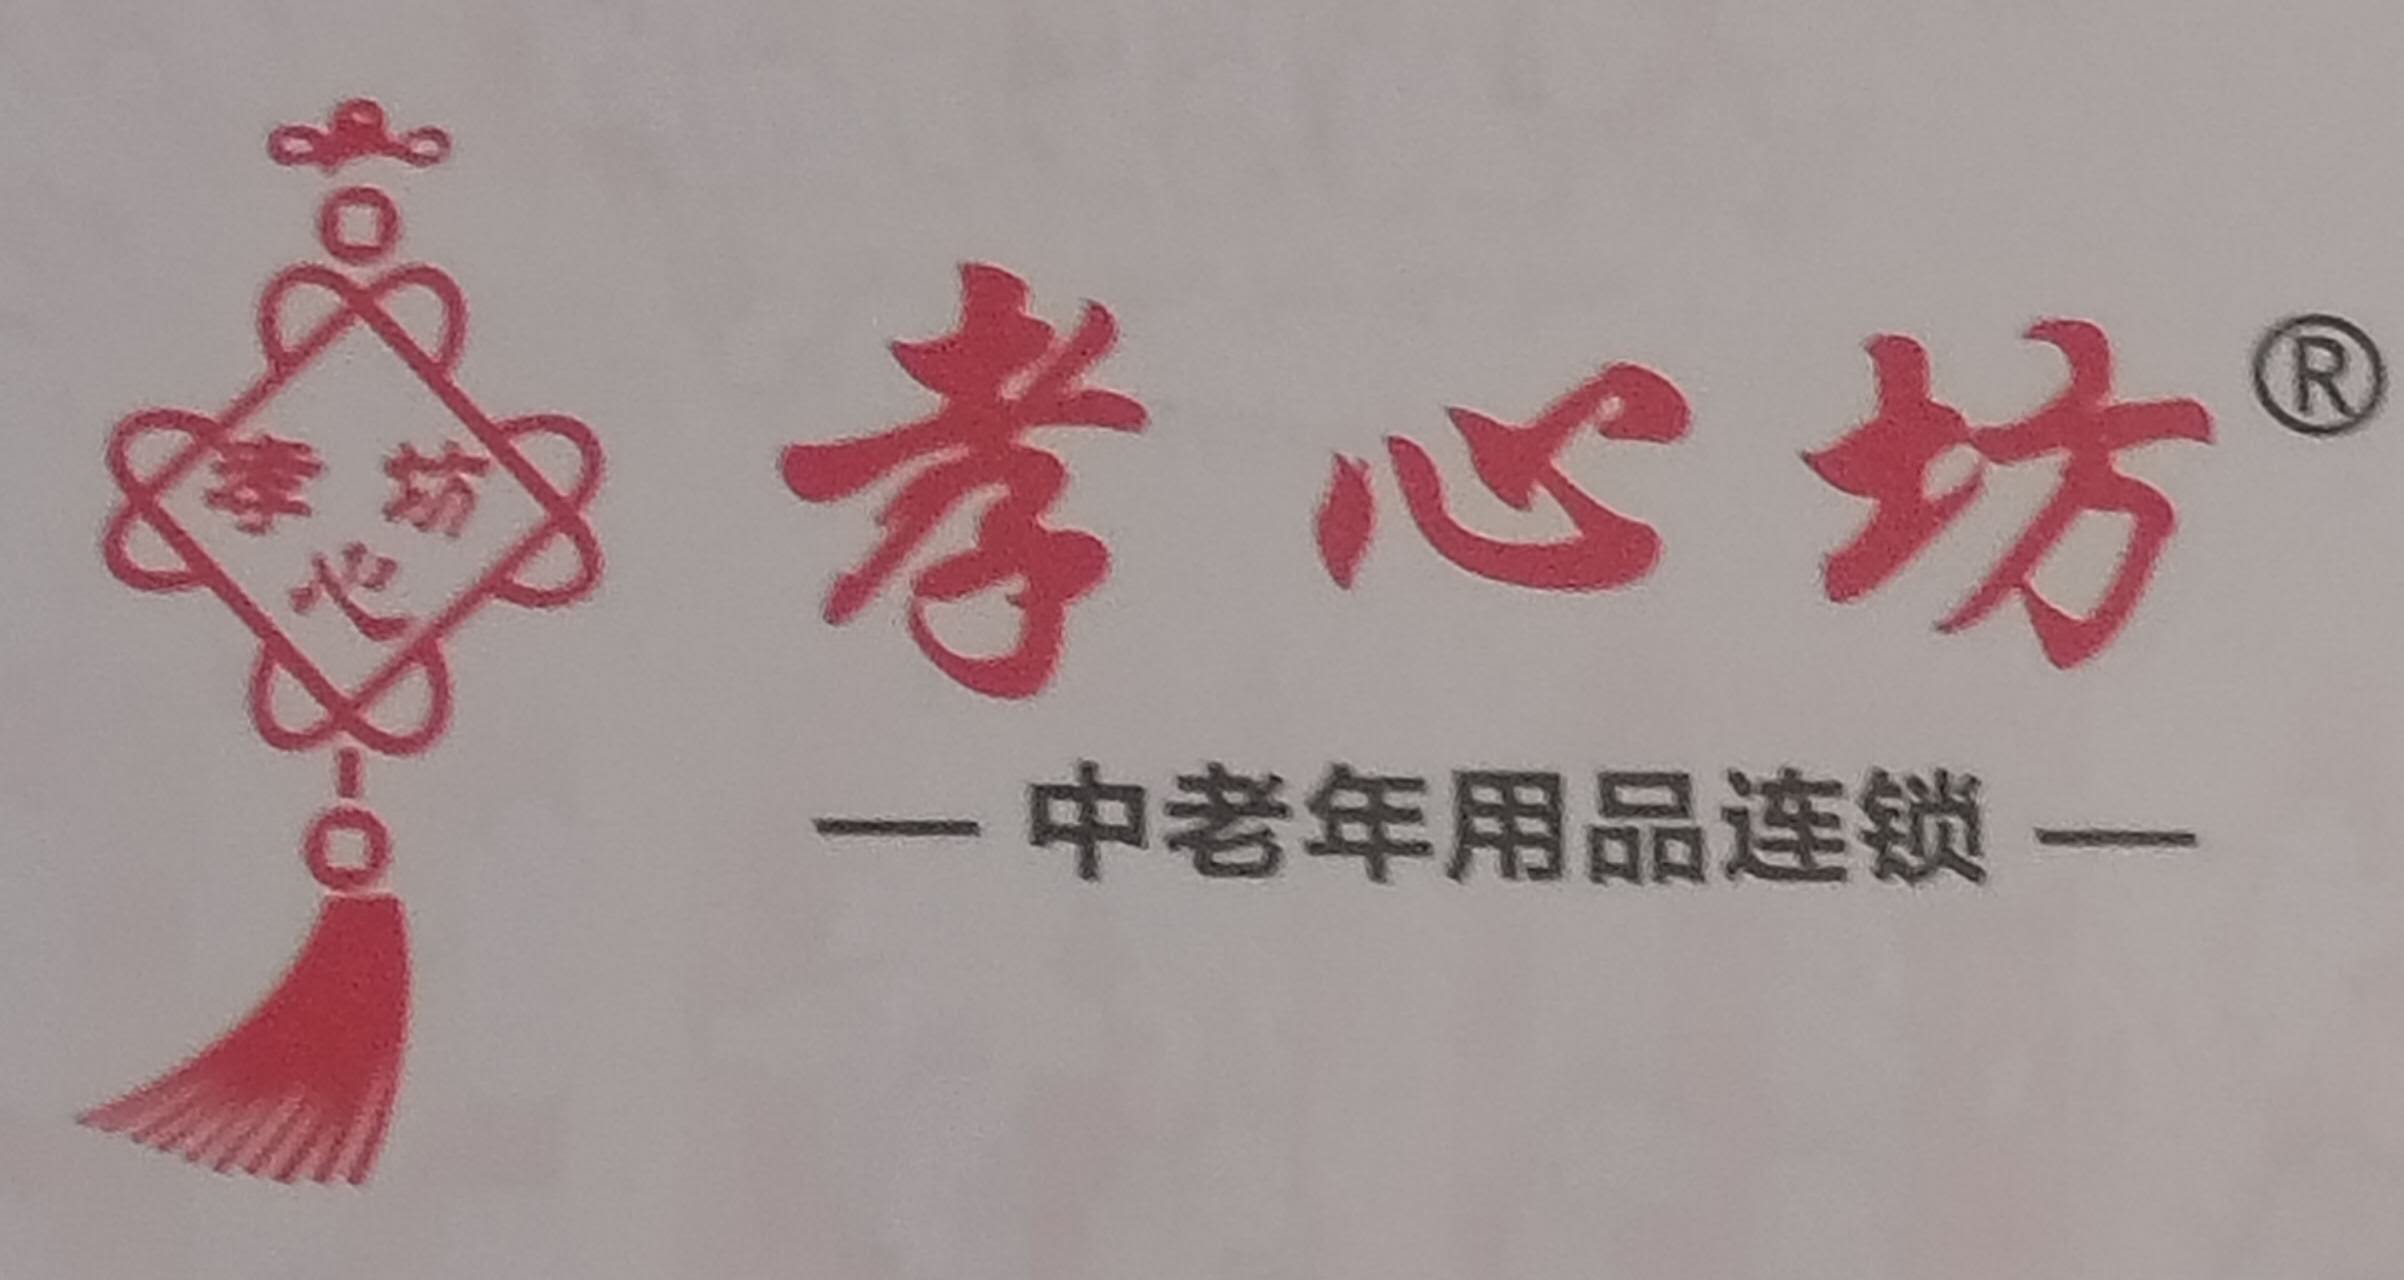 孝坊
心
孝心坊®
— 中老年用品连锁 —